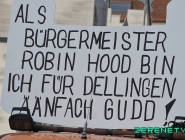 ALS
BÜRGERMEISTER
ROBIN HOOD BIN
ICH FÜR DELLINGEN
ÄÄNFACH GUDD
ZERENETY